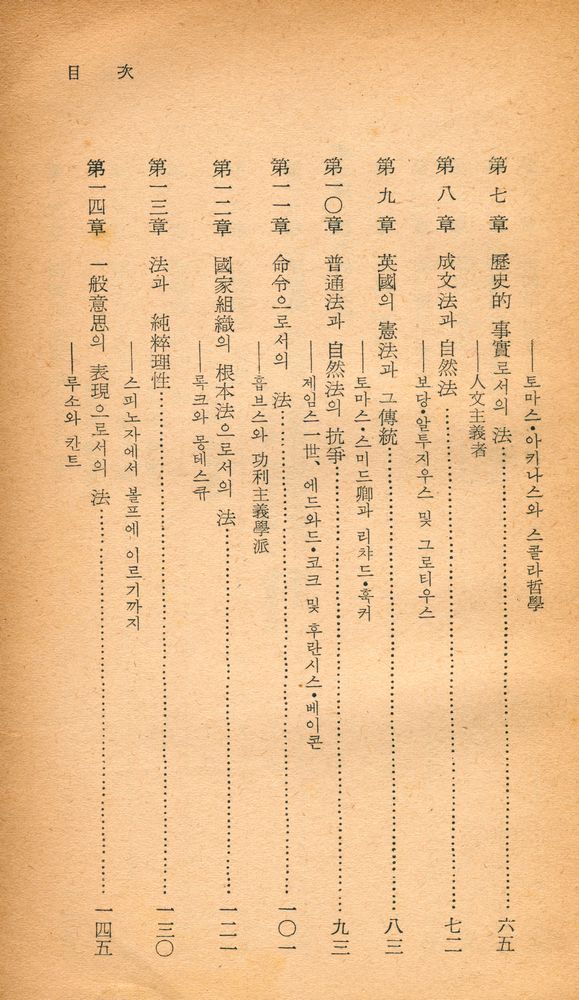 目次
——토마스•아키나스와 스콜라哲學
第七章 歷史的 事實로서의 法……六五
——人文主義者
第八章 成文法과 自然法……七二
——보당•알투지우스 및 그로티우스
第九章 英國의 憲法과 그 傳統……八三
——토마스•스미드卿과 리챠드•훅커
第一〇章 普通法과 自然法의 抗爭……九三
——제임스一世、에드와드•코크 및 후란시스•베이콘
第一一章 命令으로서의 法……一〇一
——홉브스와 功利主義學派
第一二章 國家組織의 根本法으로서의 法……一二一
——록크와 몽테스큐
第一三章 法과 純粹理性……一三〇
——스피노자에서 볼프에 이르기까지
第一四章 一般意思의 表現으로서의 法……一四五
——루소와 칸트